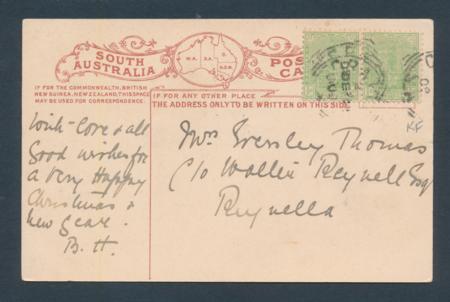 SOUTH AUSTRALIA
POST CARD
W.A. S.A. Q. N.S.W.
IF FOR THE COMMONWEALTH, BRITISH
NEW GUINEA, NEW ZEALAND, THIS SPACE
MAY BE USED FOR CORRESPONDENCE.
IF FOR ANY OTHER PLACE
THE ADDRESS ONLY TO BE WRITTEN ON THIS SIDE
With love & all
Good wishes for
a very Happy
Christmas &
New Year.
B. H.
Mrs Eversley Thomas
C/o Walter Reynell Esq
Reynella